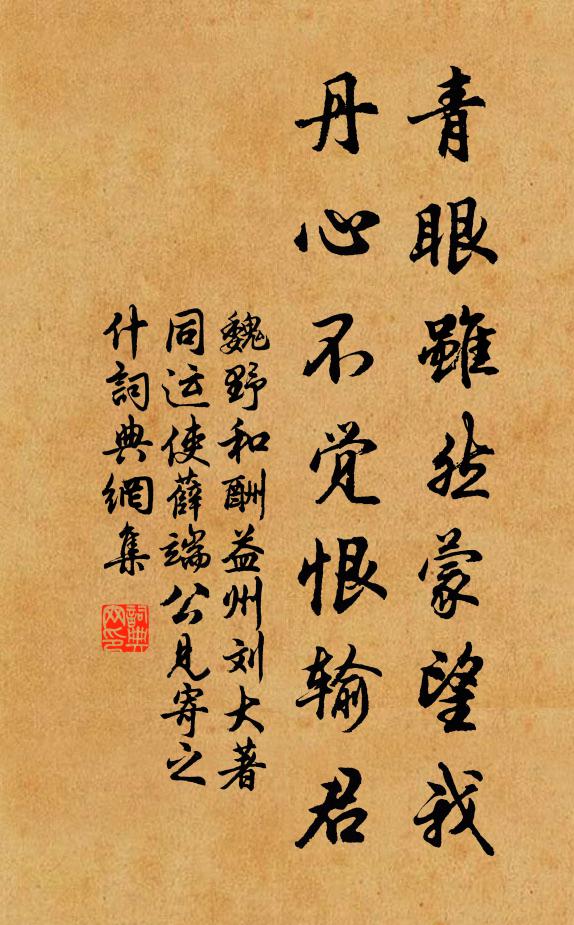 青眼雖然蒙望我
丹心不觉恨输君
魏野和酬益州刘大著
同运使薛端公见寄之
什詞典網集
詞典网印